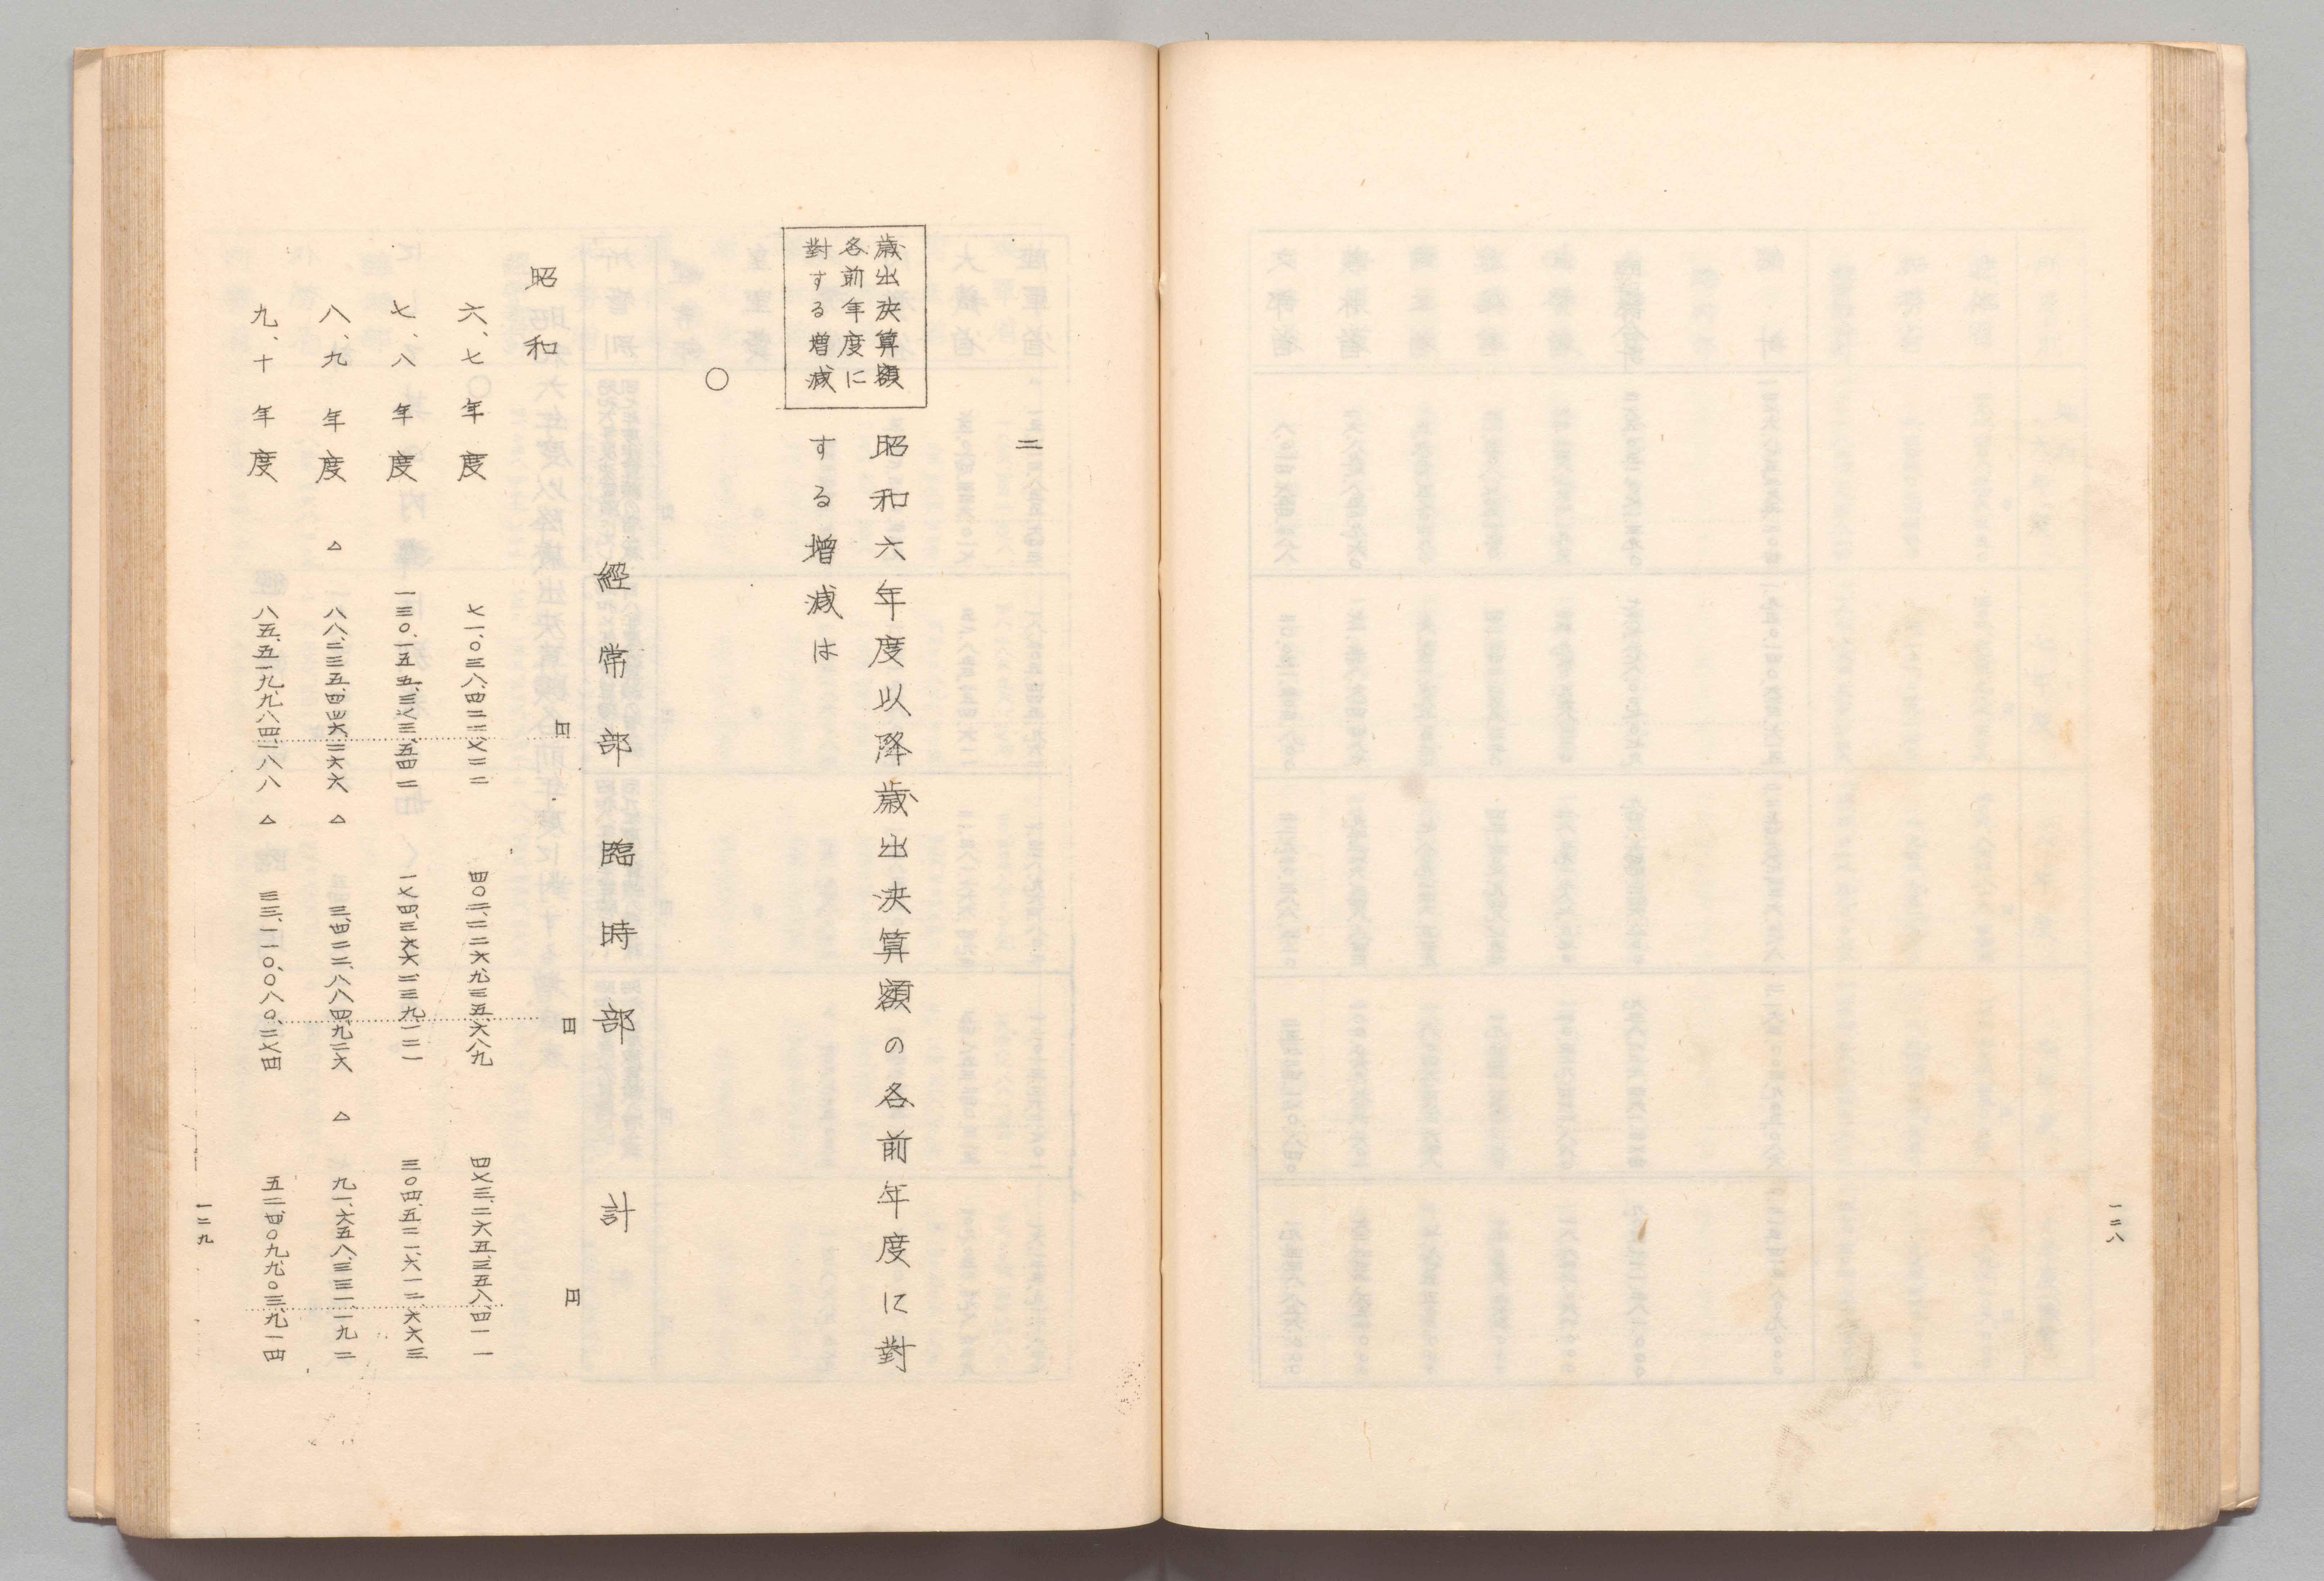 一二八
二
歳出決算額
各前年度に
對する増減
昭和六年度以降歳出決算額の各前年度に對
する増減は
〇
經常部 臨時部 計
円 円 円
昭和
六、七年度 七一、〇三八、四二二、七二二 四〇二、二二六、九三五、六八九 四七三、二六五、三五八、四一一
七、八年度 一三〇、一五五、三七三、五四二 一七四、三六六、二三九、一二一 三〇四、五二一、六一二、六六三
八、九年度 △ 八八、二三五、四四六、二六六 △ 三、四二二、八八四、九二六 △ 九一、六五八、三三一、一九二
九、十年度 八五、五一九、九八四、一八八 △ 三三、一一〇、〇八〇、二七四 五二、四〇九、九〇三、九一四
一二九